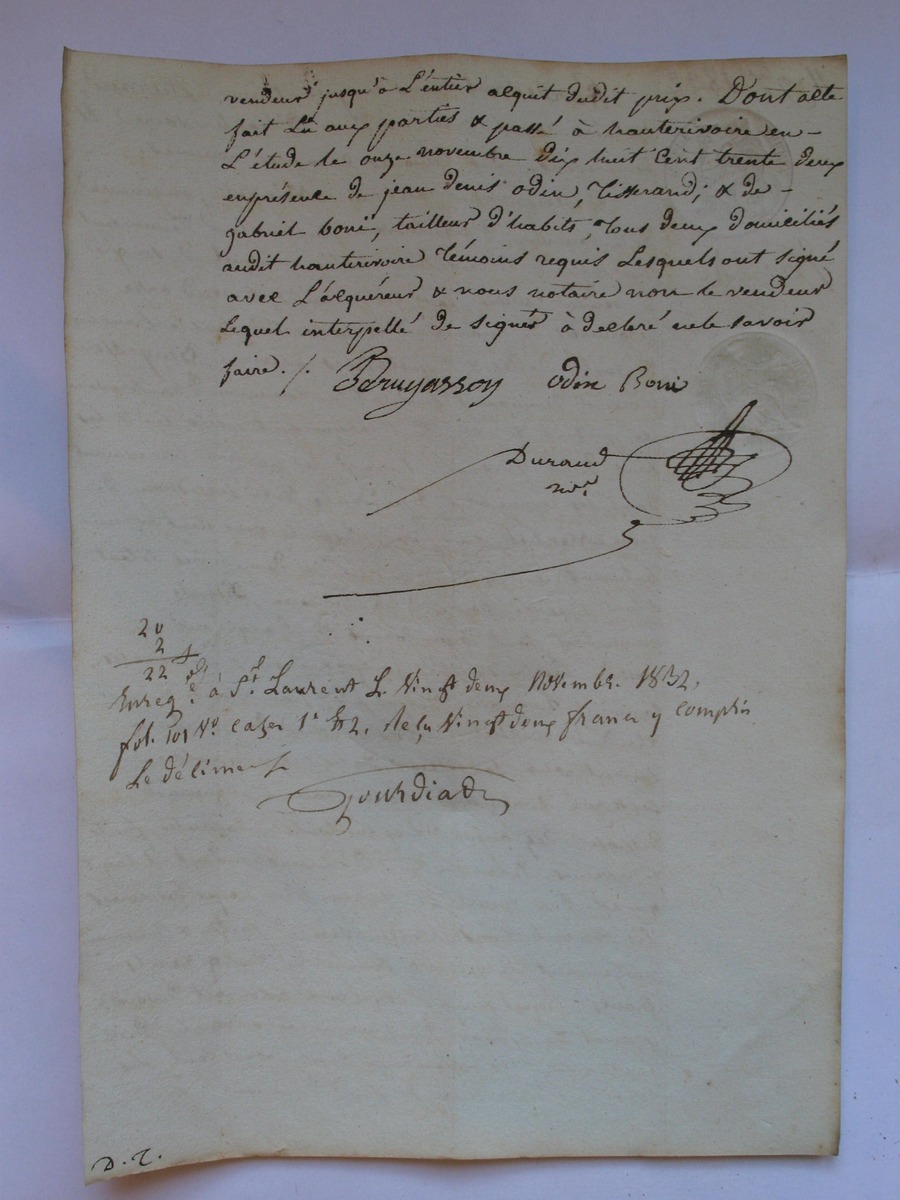 vendeur jusqu'à L'entier acquit dudit prix. Dont acte
fait Lu aux parties & passé à hauterivoire en -
L'étude le onze novembre dix huit Cent trente deux
en présence de jean denis odin, Tisserand; & de -
gabriel boni, tailleur d'habits, Tous deux domiciliés
audit hauterivoire Témoins requis Lesquels ont signé
avec L'acquéreur & nous notaire non le vendeur
Lequel interpellé de signer à declaré ne le savoir
faire. /.
odin Boni
Durand
nore
20
2
22
Enregé à St. Laurent L. Vingt deux Novembre 1832,
fol. 101 Vo cazes 1e &2, Reçu Vingt deux francs y compris
Le décime
D. T.